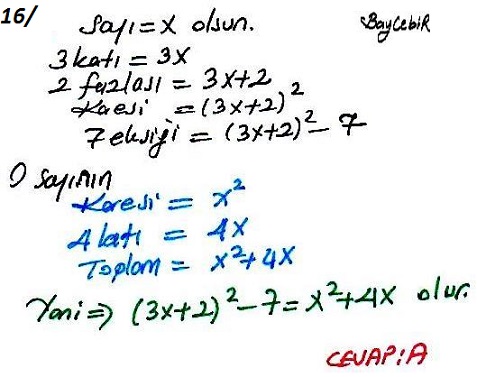 16/
Sayı = x olsun. BAYCEBİR
3 katı = 3x
2 fazlası = 3x+2
Karesi = (3x+2)²
7 eksiği = (3x+2)² - 7
O sayının
Karesi = x²
4 katı = 4x
Toplam = x²+4x
Yani ⇒ (3x+2)² - 7 = x²+4x olur.
CEVAP: A